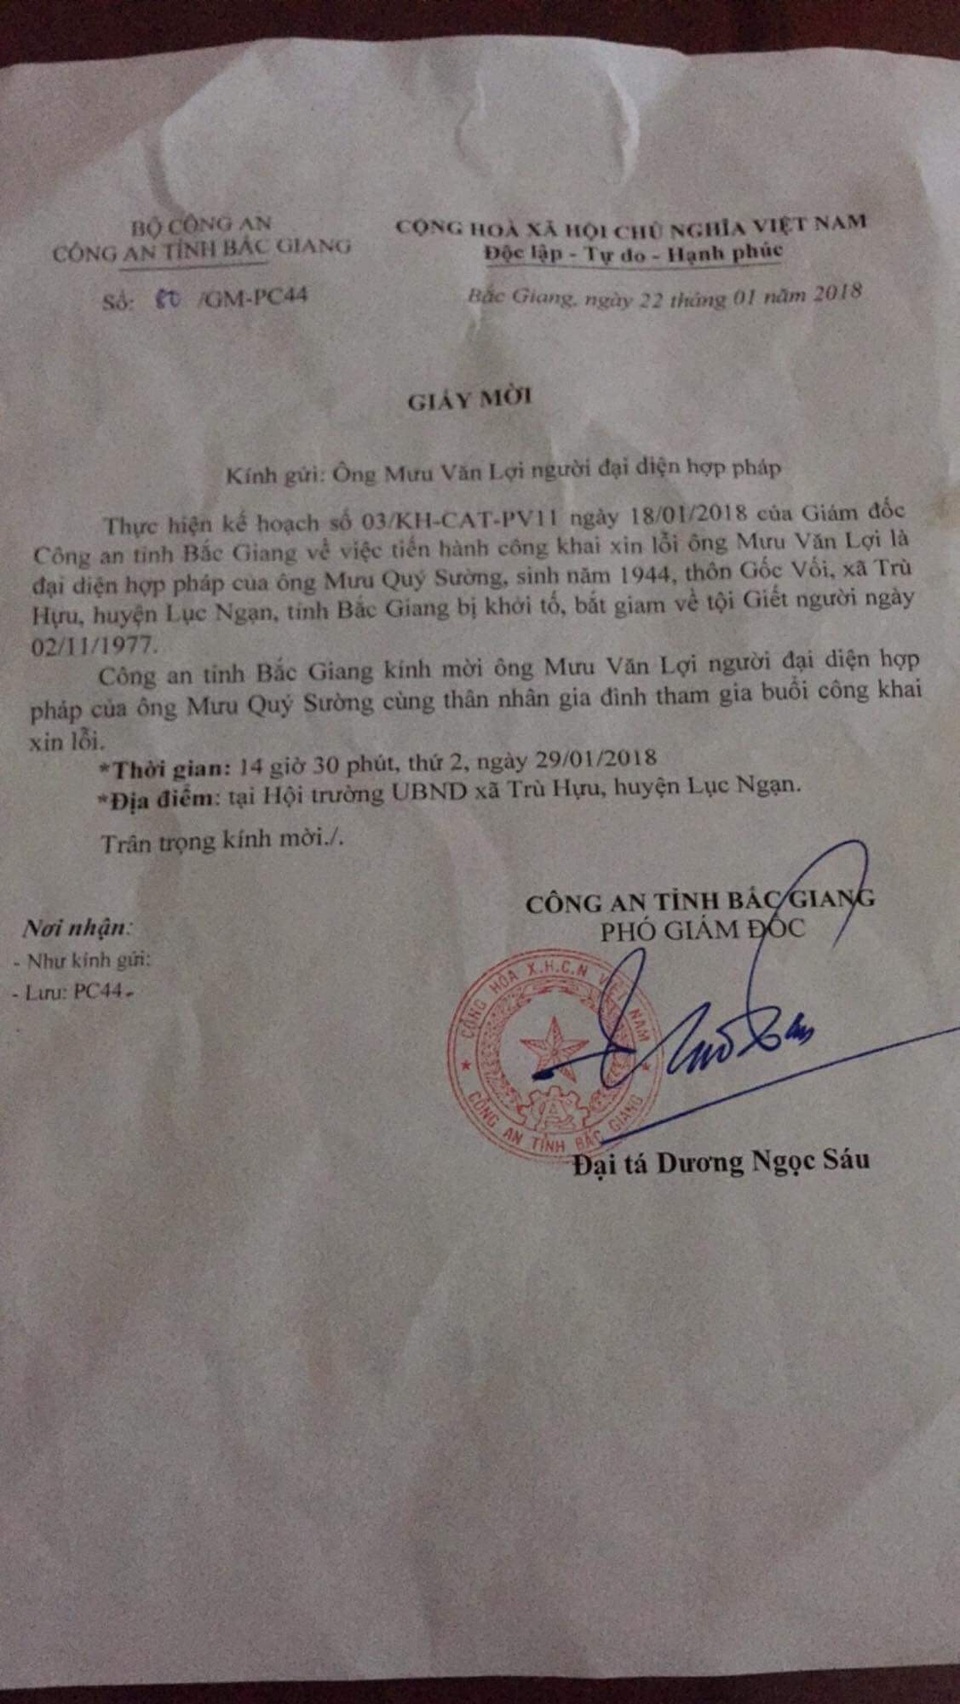 BỘ CÔNG AN
CÔNG AN TỈNH BẮC GIANG
Số: 80 /GM-PC44
CỘNG HOÀ XÃ HỘI CHỦ NGHĨA VIỆT NAM
Độc lập - Tự do - Hạnh phúc
Bắc Giang, ngày 22 tháng 01 năm 2018
GIẤY MỜI
Kính gửi: Ông Mưu Văn Lợi người đại diện hợp pháp
Thực hiện kế hoạch số 03/KH-CAT-PV11 ngày 18/01/2018 của Giám đốc
Công an tỉnh Bắc Giang về việc tiến hành công khai xin lỗi ông Mưu Văn Lợi là
đại diện hợp pháp của ông Mưu Quý Sường, sinh năm 1944, thôn Gốc Vối, xã Trù
Hựu, huyện Lục Ngạn, tỉnh Bắc Giang bị khởi tố, bắt giam về tội Giết người ngày
02/11/1977.
Công an tỉnh Bắc Giang kính mời ông Mưu Văn Lợi người đại diện hợp
pháp của ông Mưu Quý Sường cùng thân nhân gia đình tham gia buổi công khai
xin lỗi.
*Thời gian: 14 giờ 30 phút, thứ 2, ngày 29/01/2018
*Địa điểm: tại Hội trường UBND xã Trù Hựu, huyện Lục Ngạn.
Trân trọng kính mời./.
Nơi nhận:
- Như kính gửi:
- Lưu: PC44.
CÔNG AN TỈNH BẮC GIANG
PHÓ GIÁM ĐỐC
CỘNG HÒA X.H.C.N VIỆT NAM
CÔNG AN TỈNH BẮC GIANG
Đại tá Dương Ngọc Sáu